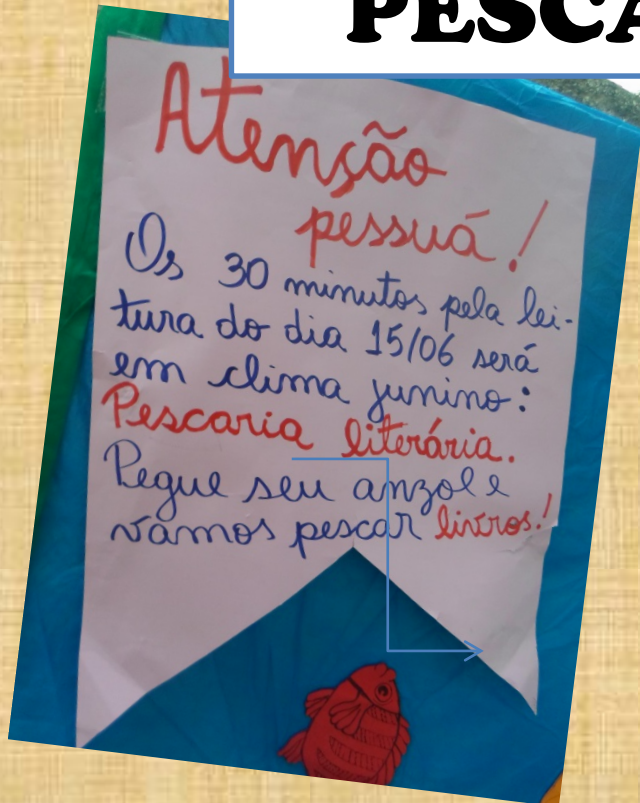 PESCA
Atenção
pessuá!
Os 30 minutos pela lei-
tura do dia 15/06 será
em clima junino:
Pescaria literária.
Pegue seu anzol e
vamos pescar livros!